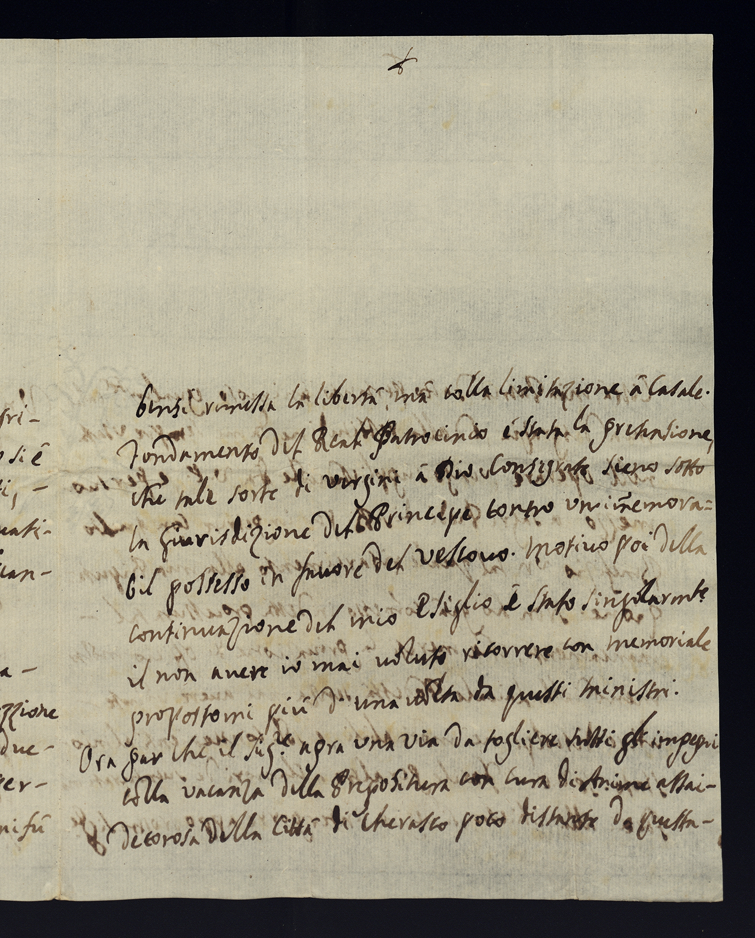 bensi rimessa la libertà, mà colla limitazione à Casale.
Fondamento del Real Patrocinio è stata la pretensione,
che tale sorte di vergini à Dio Consigrate sieno sotto
la giurisdizione del Principe contro un'im̃emora=
bil possesso in favore del Vescovo. Motivo poi della
continuazione del mio Esiglio è stato singolarmte
il non avere io mai voluto ricorrere con memoriale
propostomi più d'una volta da questi Ministri.
Ora par che il Sigre apra una via da togliere tutti gl'impegni
colla vacanza della Prepositura con cura di Anime assai-
decorosa della Città di Cherasco poco distante da questa-
fri-
si è
ti, -
uan-
a -
zzione
due-
per-
ni fù